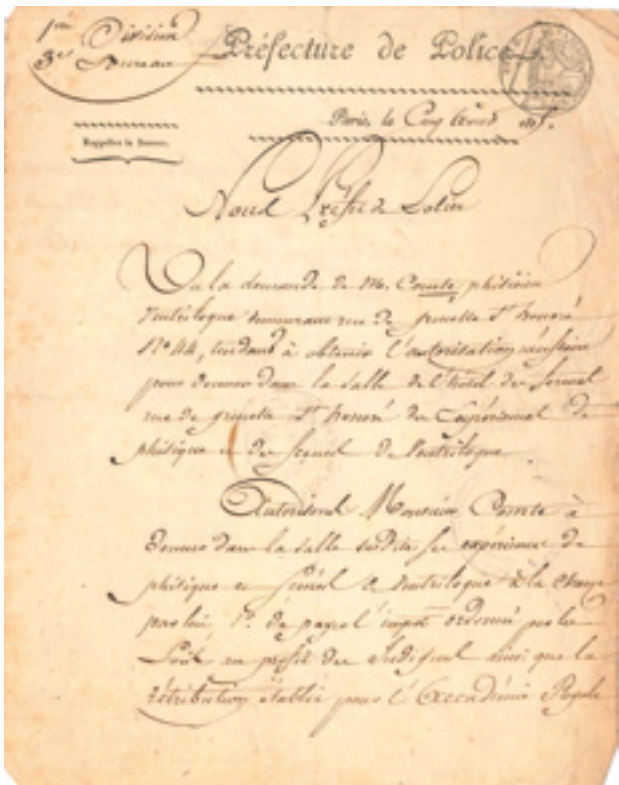 1ère Division
3e Bureau
Préfecture de Police.
Paris, le Cinq
Nous Préfet de Police
Vu la demande de M. Comte phisicien
Ventriloque demeurant rue de grenelle St honoré
N° 44, tendant à obtenir l'autorisation nécessaire
pour donner dans la salle de l'hôtel des fermes
rue de grenelle St honoré des Expériences de
phisique et des scènes de Ventriloque.
Autorisons Monsieur Comte à
donner dans la salle susdite ses expériences de
phisique et scènes de Ventriloque à la charge
par lui, 1° de payer l'impôt ordonné par les
Loix au profit des Indigens ainsi que la
rétribution établie pour l'Accadémie Royale